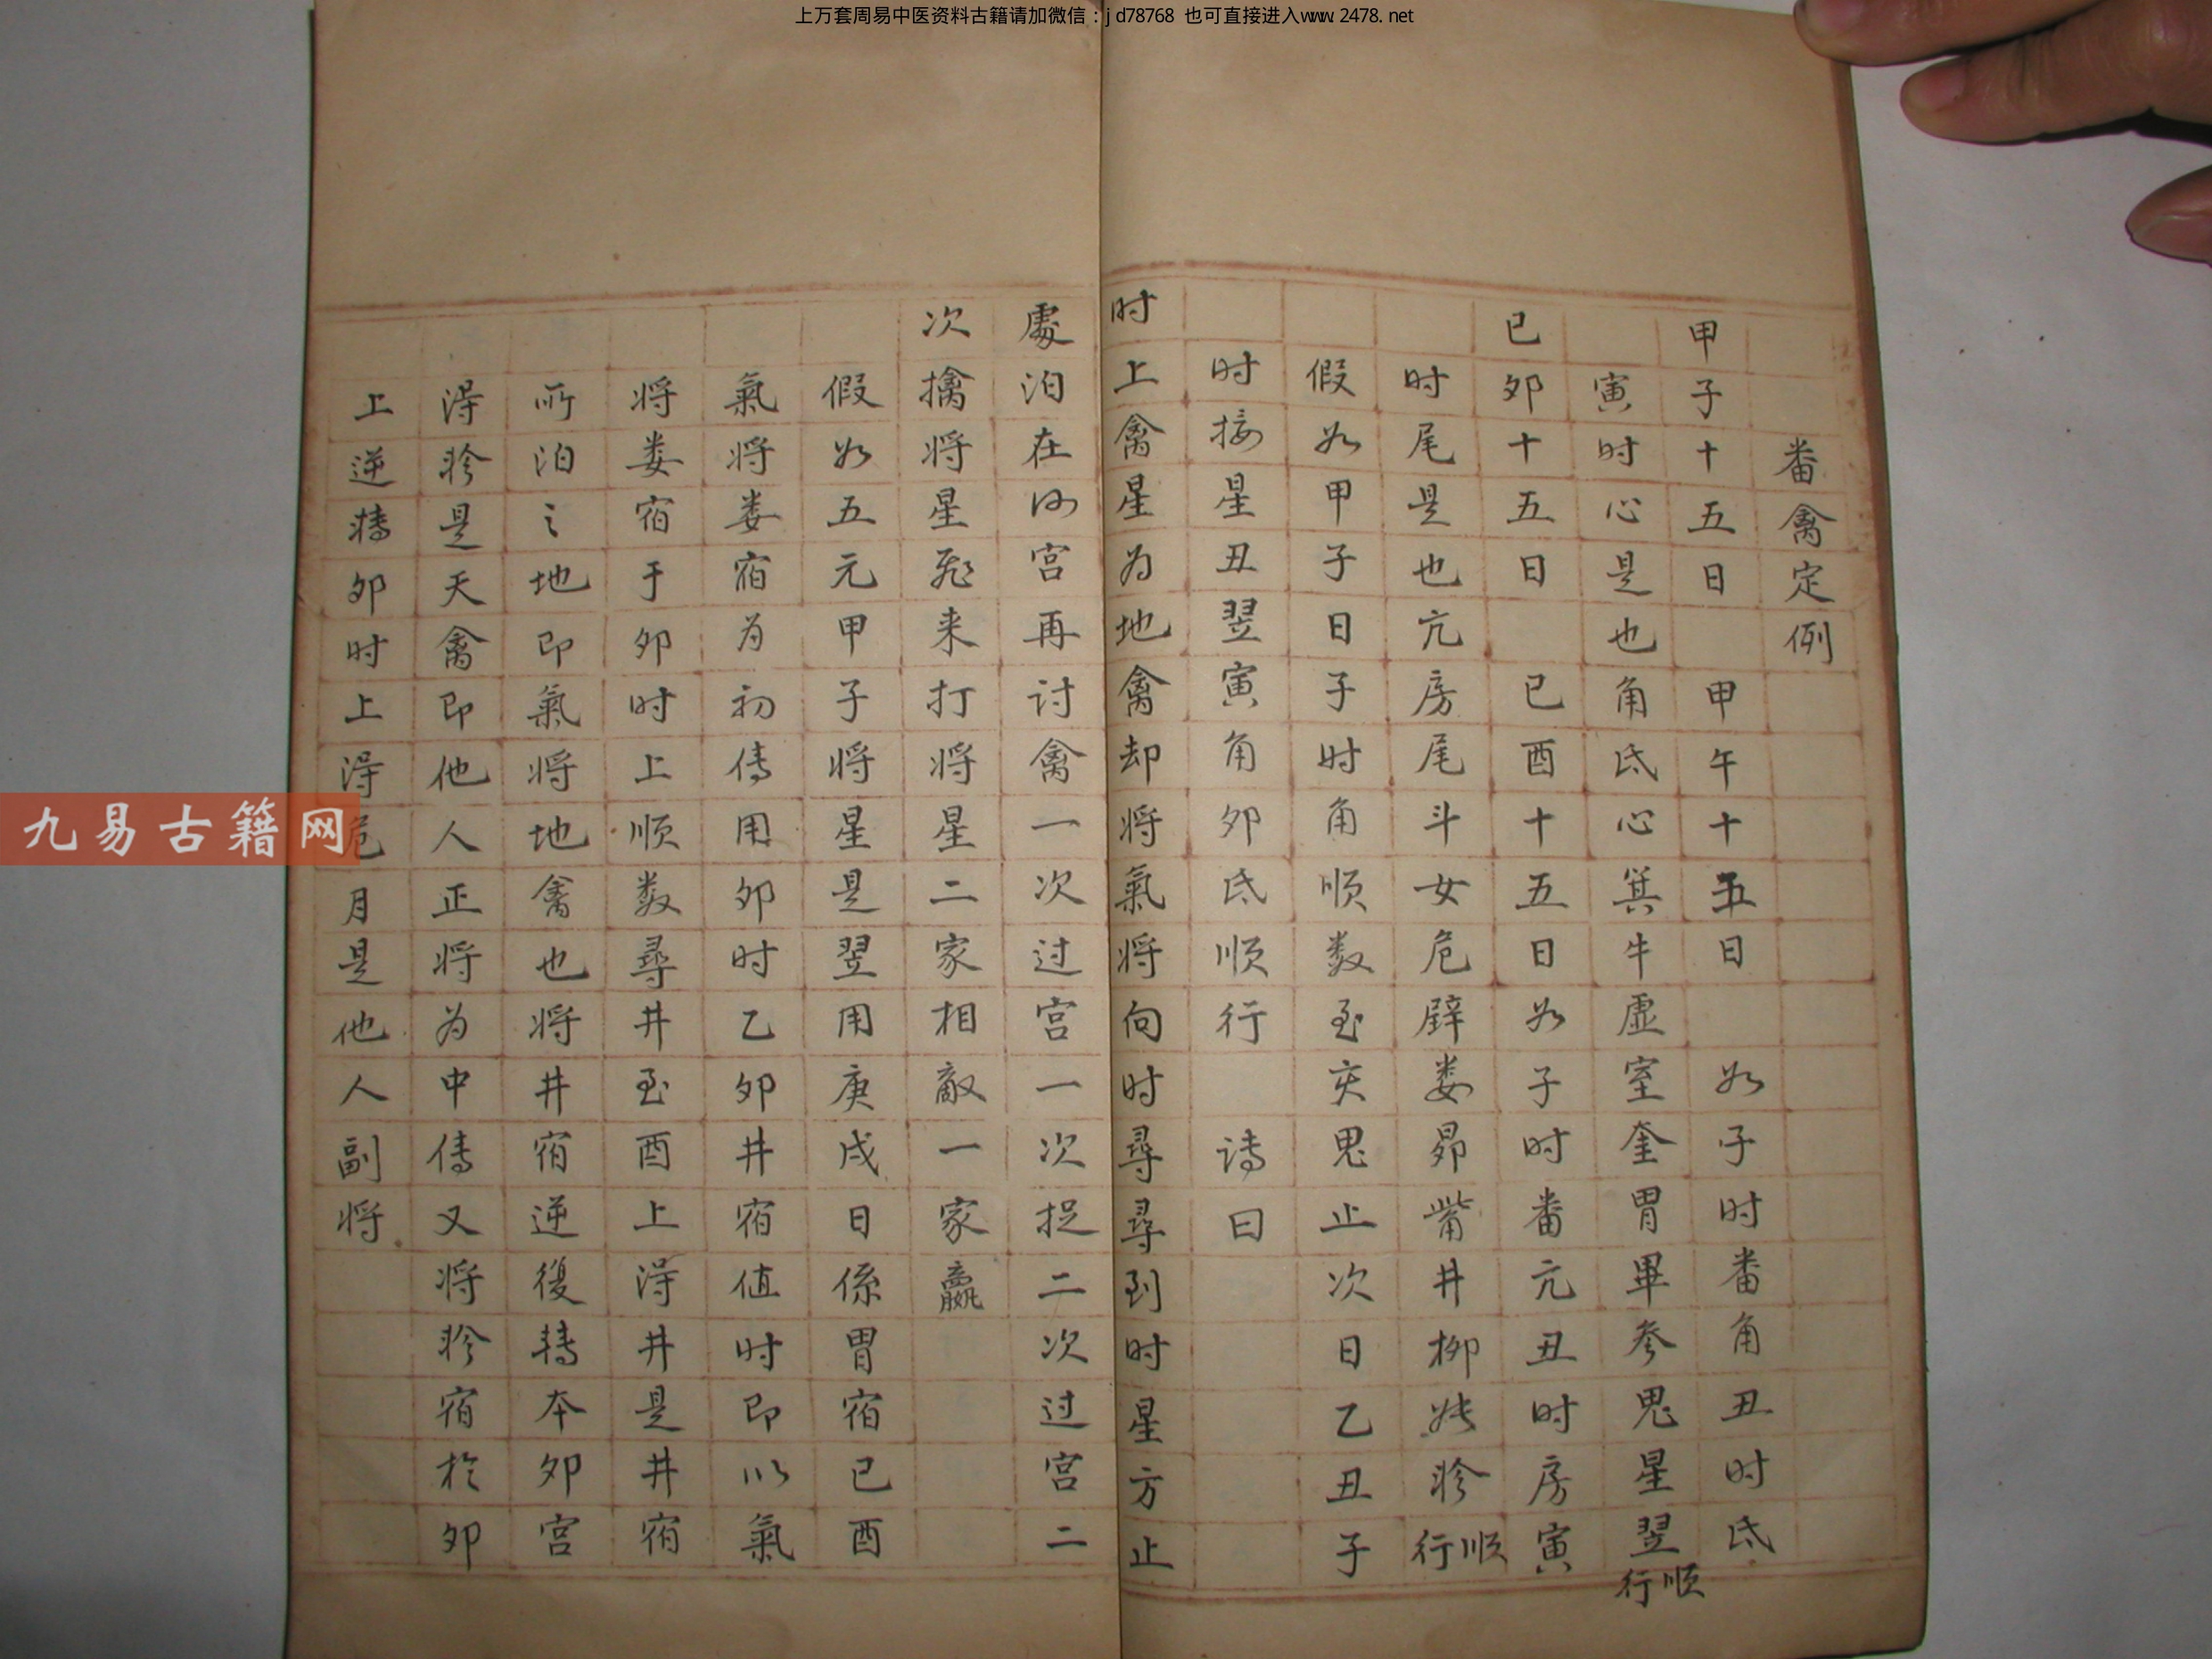 上万套周易中医资料古籍请加微信：jd78768 也可直接进入www.2478.net
番禽定例
甲子十五日 甲午十五日 如子时番角丑时氐
寅时心是也角氐心箕牛虚室奎胃畢参鬼星翌顺行
已夘十五日 已酉十五日如子时番亢丑时房寅
时尾是也亢房尾斗女危壁娄昴觜井柳张轸顺行
假如甲子日子时角顺数至亥鬼止次日乙丑子
时接星丑翌寅角夘氐顺行 诗曰
时上禽星为地禽却将氣将向时尋尋到时星方止
處泊在何宫再讨禽一次过宫一次捉二次过宫二
次擒将星飛来打将星二家相敵一家贏
假如五元甲子将星是翌用庚戌日係胃宿已酉
氣将娄宿为初传用夘时乙夘井宿值时即以氣
将娄宿于夘时上顺数尋井至酉上得井是井宿
所泊之地即氣将地禽也将井宿逆復转本夘宫
得轸是天禽即他人正将为中传又将轸宿於夘
上逆转夘时上得危月是他人副将
九易古籍网